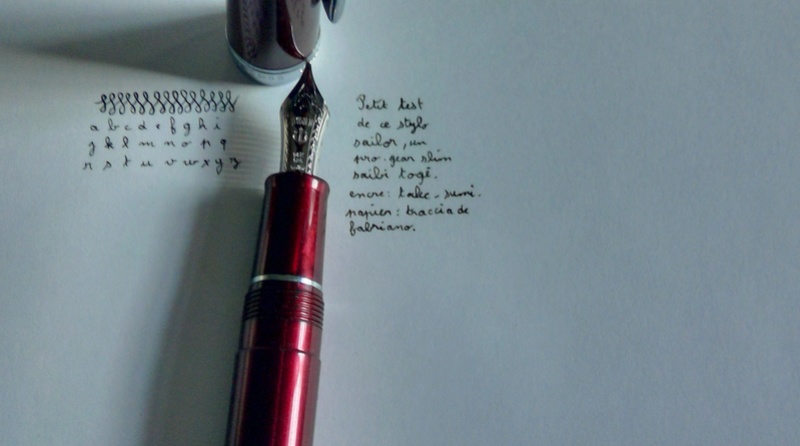 a b c d e f g h i
j k l m n o p q
r s t u v w x y z
Petit test
de ce stylo
sailor, un
pro gear slim
saibi togi.
encre: take-sumi.
papier: traccia de
fabriano.